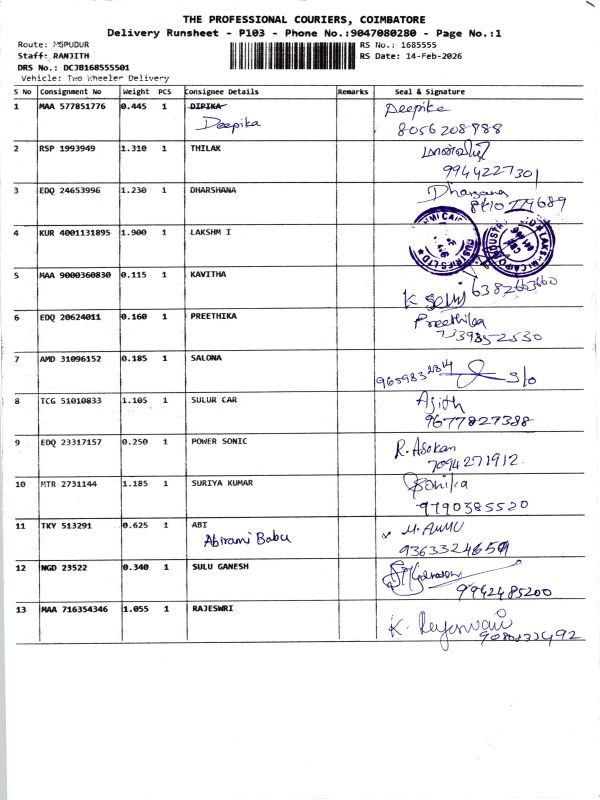 THE PROFESSIONAL COURIERS, COIMBATORE
Delivery Runsheet - P103 - Phone No.:9047080280 - Page No.:1
Route: MSPUDUR
RS No.: 1685555
Staff: RANJITH
RS Date: 14-Feb-2026
DRS No.: DCJB168555501
Vehicle: Two Wheeler Delivery
S No Consignment No Weight PCS Consignee Details Remarks Seal & Signature
1 MAA 577851776 0.445 1 DIPIKA Deepika
Deepika 8056208988
2 RSP 1993949 1.310 1 THILAK
9944227301
3 EDQ 24653996 1.230 1 DHARSHANA Dharsana
4 KUR 4001131895 1.900 1 LAKSHM I
5 MAA 9000360830 0.115 1 KAVITHA
K 6382663660
6 EDQ 20624011 0.160 1 PREETHIKA Preethika
7339852530
7 AMD 31096152 0.185 1 SALONA
S/o
8 TCG 51010833 1.105 1 SULUR CAR Ajith
9677827388
9 EDQ 23317157 0.250 1 POWER SONIC R. Asokan
7094271912.
10 MTR 2731144 1.185 1 SURIYA KUMAR
9790385520
11 TKY 513291 0.625 1 ABI
Abirami Babu
12 NGD 23522 0.340 1 SULU GANESH
9942485200
13 MAA 716354346 1.055 1 RAJESWRI
K.